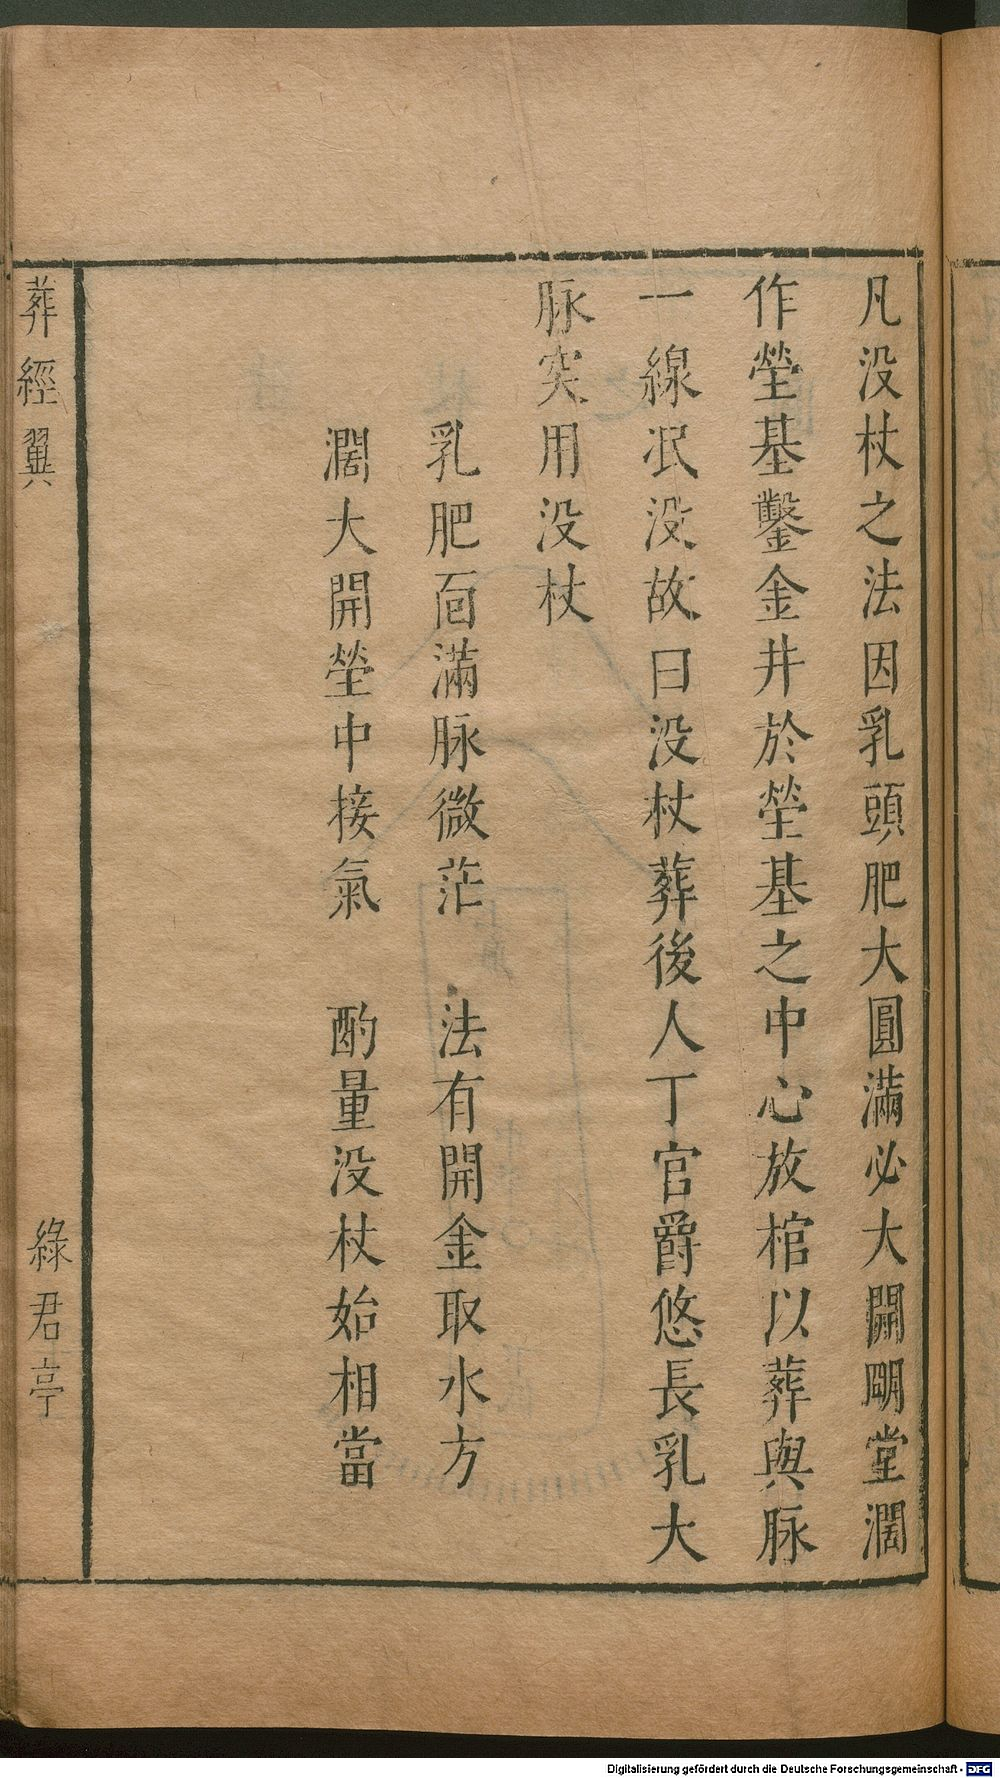 凡没杖之法因乳頭肥大圓滿必大開明堂濶
作塋基鑿金井於塋基之中心放棺以葬與脉
一線泯没故曰没杖葬後人丁官爵悠長乳大
脉突用没杖
乳肥面滿脉微茫　法有開金取水方
濶大開塋中接氣　酌量没杖始相當
葬經翼
綠君亭
Digitalisierung gefördert durch die Deutsche Forschungsgemeinschaft - DFG